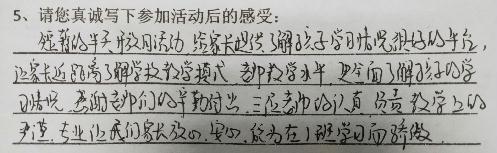 5、请您真诚写下参加活动后的感受：
短暂的半天开放日活动，给家长提供了解孩子学习情况很好的平台，
让家长近距离了解学校教学模式，老师教学水平，更全面了解孩子的学
习情况，感谢老师们的辛勤付出，三位老师的认真、负责，教学上的
严谨，专业让我们家长放心，安心，能为在1班学习而骄傲。